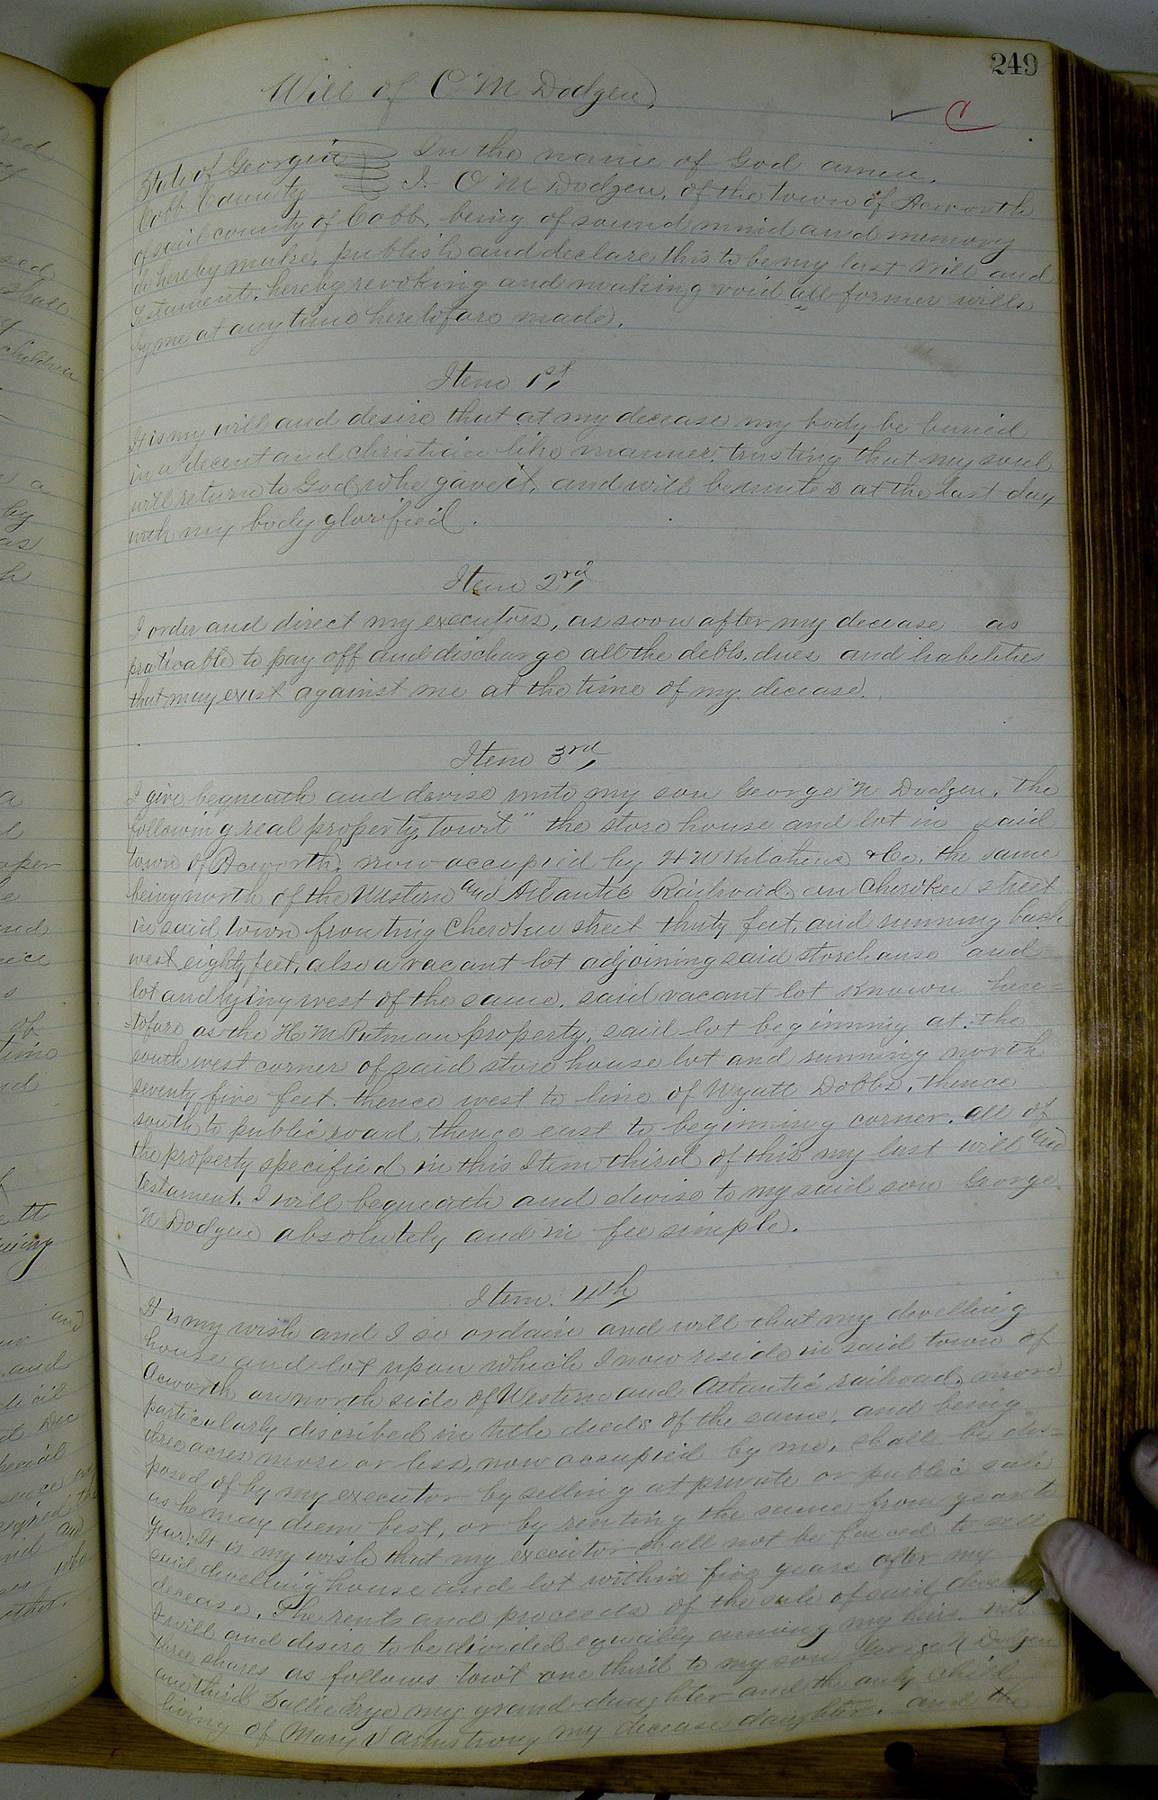 249
Will of O M Dodgen.
C
State of Georgia In the name of God amen.
Cobb County I. O M Dodgen, of the town of Acworth
of said county of Cobb, being of sound mind and memory
do hereby make, publish and declare this to be my last will and
testament, hereby revoking and making void all former wills
by me at any time heretofore made.
Item 1st,
It is my will and desire that at my decease my body be buried
in a decent and christian like manner, trusting that my soul
will return to God who gave it, and will be at the last day
with my body glorified.
Item 2nd,
I order and direct my executors, as soon after my decease as
praticable to pay off and discharge all the debts, dues and liabilities
that may exist against me at the time of my decease.
Item 3rd,
I give bequeath and devise unto my son George N Dodgen, the
following real property, towit" the store house and lot in said
town of Acworth, now occupied by & Co. the same
being north of the Western and Atlantic Railroad, on Cherokee street
in said town fronting Cherokee street thirty feet, and running back
west eighty feet, also a vacant lot adjoining said storehouse and
lot and lying west of the same, said vacant lot known here=
=tofore as the H M Putman property, said lot beginning at the
south west corner of said store house lot and running north
seventy five feet, thence west to line of Wyatt Dobbs, thence
south to public road, thence east to beginning corner. all of
the property specified in this Item third of this my last will and
testament. I will bequeath and devise to my said son George
N Dodgen absolutely and in fee simple.
Item. 4th,
It is my wish and I so ordain and will that my dwelling
house and lot upon which I now reside in said town of
Acworth on north side of Western and Atlantic railroad, more
particularly discribed in title deeds of the same, and being
three acres more or less, now occupied by me, shall be dis=
posed of by my executor by selling at private or public sale
as he may deem best, or by renting the same from year to
year. It is my wish that my executor shall not be forced to sell
said dwelling house and lot within five years after my
decease. The rents and proceeds of the sale of said
I will and desire to be divided equally among my heirs, into
three shares as follows towit one third to my son George N Dodgen
one third Sallie Frye my grand daughter and the only child
living of Mary V Armstrong my decease daughter. and the